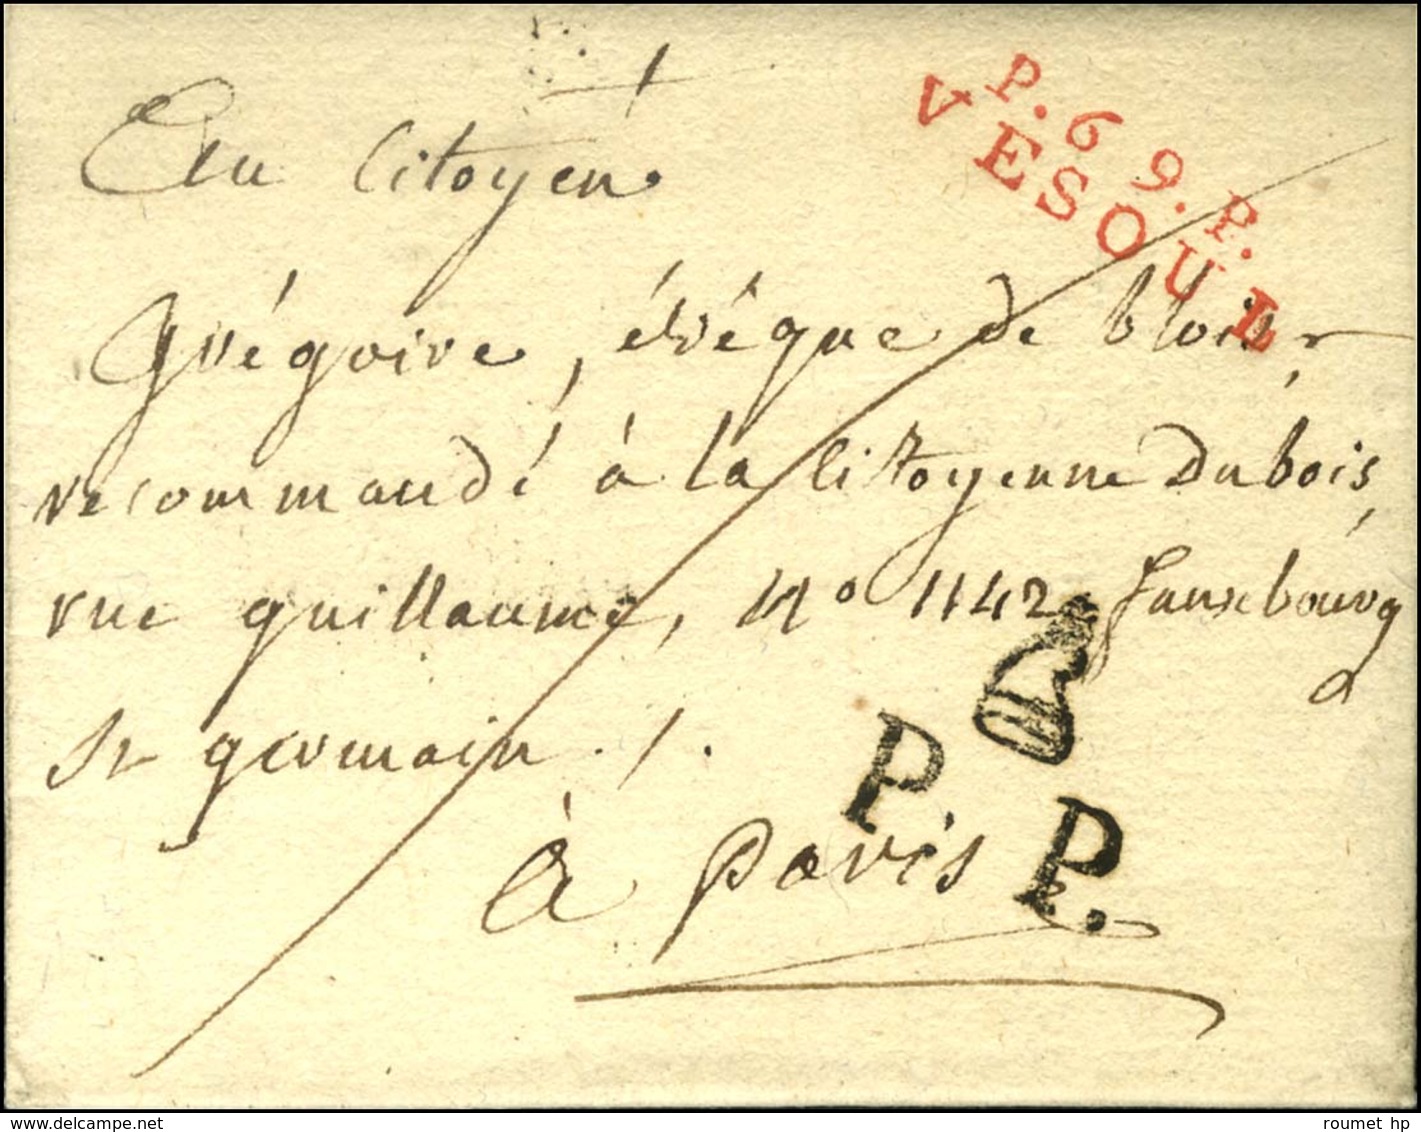 P. 69. P.
VESOUL
Au Citoyen
Grégoire, évêque de blois,
recommandé à la Citoyenne Dubois,
rue guillaume, n° 1142 fauxbourg
St germain ./.
à paris
P. P.
delcampe.net
roumet hp